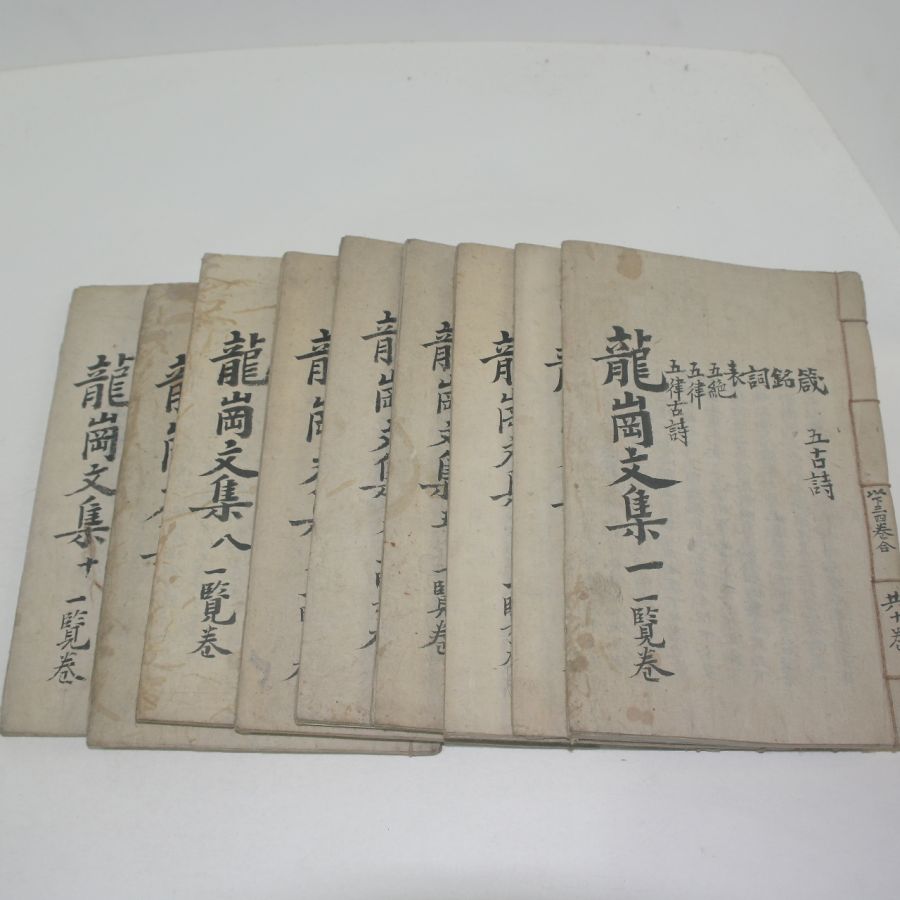 共十卷
箴
銘
詞
表
五絶
五律
五律古詩
五古詩
龍崗文集一 一覽卷
龍
龍崗文集 一覽卷
龍崗文集五 一覽卷
龍崗文集
龍崗文
龍崗文集八 一覽卷
龍崗
龍崗文集十 一覽卷